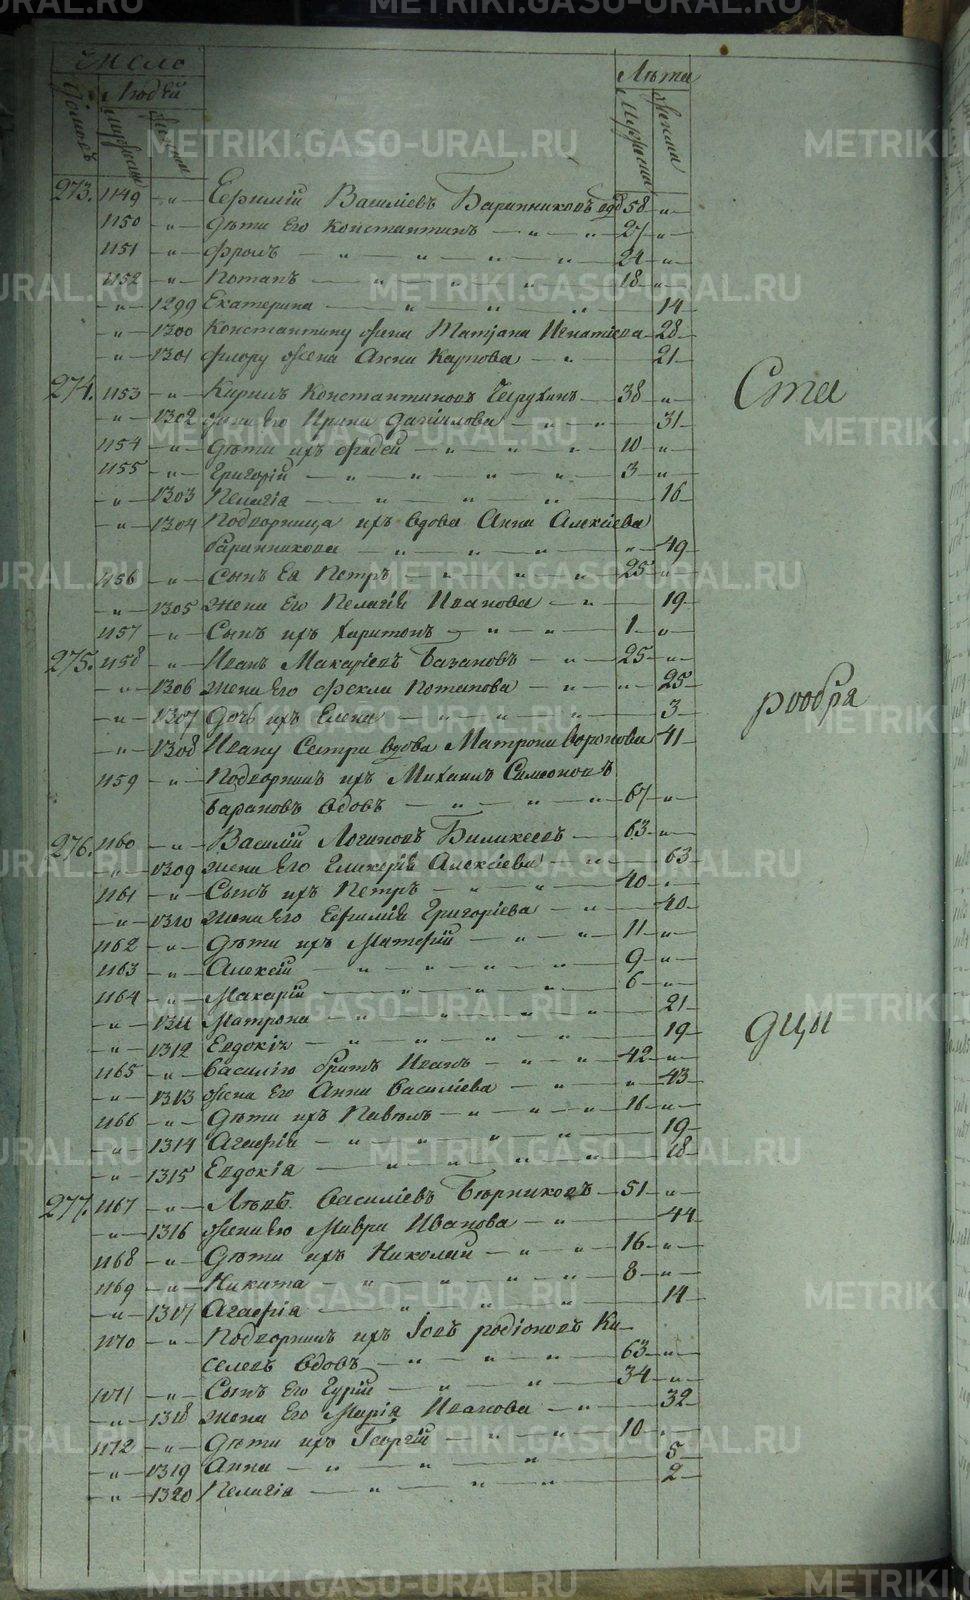 Число
Домовъ
Людей
Мужеска
Женска
Лѣта
Мужеска
Женска
273. 1149 — „ — Ефимій Василіевъ Баранниковъ вдов 58 — „ —
1150 — „ — дѣти Его Константинъ — „ — „ — 27 — „ —
1151 — „ — Фролъ — „ — „ — „ — „ — 24 — „ —
1152 — „ — Потапъ — „ — „ — „ — 18 — „ —
— „ — 1299 Екатерина — „ — „ — „ — 14 —
— „ — 1300 Константину жена Татјана Игнатіева — 28 —
— „ — 1301 Флору жена Анна Карпова — „ — 21 —
274. 1153 — „ — Кирилъ Константиновъ — 38 — „ —
— „ — 1302 жена Его Ирина Даніилова — „ — „ — 31 —
1154 — „ — Дѣти ихъ Фадей — „ — „ — „ — 10 — „ —
1155 — „ — Григорій — „ — „ — „ — „ — 3 — „ —
— „ — 1303 Пелагія — „ — „ — „ — 16 —
— „ — 1304 Подворница ихъ вдова Анна Алексіева
Баранникова — „ — „ — „ — „ — 49 —
1156 — „ — Сынъ Ея Петръ — „ — „ — „ — 25 — „ —
— „ — 1305 жена Его Пелагія Иванова — „ — 19 —
1157 — „ — Сынъ ихъ Харитонъ — „ — „ — „ — 1 — „ —
275. 1158 — „ — Иванъ Макаріевъ Базановъ — „ — 25 — „ —
— „ — 1306 жена Его Фекла Потапова — „ — „ — 25 —
— „ — 1307 Дочь ихъ Елена — „ — „ — „ — 3 —
— „ — 1308 Ивану Сестра вдова Матрона Воронова 41 —
1159 — „ — Подворникъ ихъ Михаилъ Симеоновъ
Барановъ вдовъ — „ — „ — „ — 67 — „ —
276. 1160 — „ — Василій Логиновъ — 63 — „ —
— „ — 1309 жена Его Гликерія Алексіева — „ — 63
1161 — „ — Сынъ ихъ Петръ — „ — „ — 40 — „ —
— „ — 1310 Жена Его Ефимія Григоріева — „ — 40 —
1162 — „ — Дѣти ихъ Матфій — „ — „ — „ — 11 — „ —
1163 — „ — Алексій — „ — „ — „ — „ — 9 — „ —
1164 — „ — Макарій — „ — „ — „ — 6 — „ —
— „ — 1311 Матрона — „ — „ — „ — „ — 21 —
— „ — 1312 Евдокія — „ — „ — „ — „ — 19 —
1165 — „ — Василію братъ Иванъ — „ — „ — 42 — „ —
— „ — 1313 жена Его Анна Василіева — „ — „ — 43 —
1166 — „ — Дѣти ихъ Павелъ — „ — „ — „ — 16 — „ —
— „ — 1314 Агафія — „ — „ — „ — „ — 19 —
— „ — 1315 Евдокія — „ — „ — „ — 18 —
277. 1167 — „ — Левъ Василіевъ — 51 — „ —
— „ — 1316 жена Его Мавра Иванова — „ — 44
1168 — „ — Дѣти ихъ Николай — „ — „ — 16 — „ —
1169 — „ — Никита — „ — „ — „ — „ — 8 — „ —
— „ — 1317 Агафія — „ — „ — „ — 14 —
1170 — „ — Подворникъ ихъ Іовъ родіоновъ Ки-
селевъ вдовъ — „ — „ — „ — 63 — „ —
1171 — „ — Сынъ Его Гурій — „ — „ — „ — 34 — „ —
— „ — 1318 жена Его Марія Иванова — „ — 32 —
1172 — „ — Дѣти ихъ Георгій — „ — „ — „ — 10 — „ —
— „ — 1319 Анна — „ — „ — „ — 5 —
— „ — 1320 Пелагія — „ — „ — „ — 2 —
Ста
рообря
дцы
METRIKI.GASO-URAL.RU